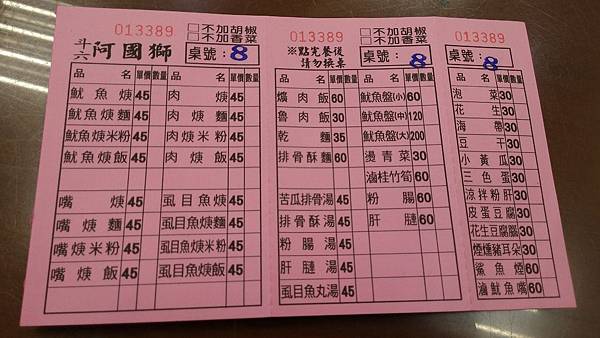 013389
□不加胡椒
□不加香菜
斗六 阿國獅 桌號:8
品名 單價 數量 品名 單價 數量
魷魚焿 45 肉焿 45
魷魚焿麵 45 肉焿麵 45
魷魚焿米粉 45 肉焿米粉 45
魷魚焿飯 45 肉焿飯 45
嘴焿 45 虱目魚焿 45
嘴焿麵 45 虱目魚焿麵 45
嘴焿米粉 45 虱目魚焿米粉 45
嘴焿飯 45 虱目魚焿飯 45
013389
□不加胡椒
□不加香菜
※點完餐後
請勿換桌
桌號:8
品名 單價 數量 品名 單價 數量
爌肉飯 60 魷魚盤(小) 60
魯肉飯 30 魷魚盤(中) 120
乾麵 35 魷魚盤(大) 200
排骨酥麵 60 燙青菜 30
滷桂竹筍 60
苦瓜排骨湯 45 粉腸 60
排骨酥湯 45 肝膥 60
粉腸湯 45
肝膥湯 45
虱目魚丸湯 45
013389
桌號:8
品名 單價 數量
泡菜 30
花生 30
海帶 30
豆干 30
小黃瓜 30
三色蛋 30
涼拌粉肝 30
皮蛋豆腐 30
花生豆腐 30
煙燻豬耳朵 30
鯊魚煙 60
滷魷魚嘴 60